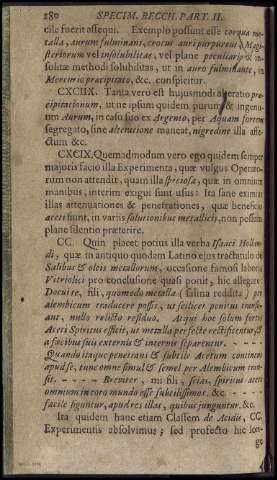 280 SPECIM. BECCH. PART. II.
cile fuerit assequi. Exemplo possunt esse cornua me-
talla, aurum fulminans, crocus auri purpureus & Magi-
steriorum vel insolubilitas, vel plane peculiaris & in-
solitæ methodi solubilitas, ut in auro fulminante, in
Mercurio præcipitato, &c. conspicitur.
CXCIIX. Tanta vero est hujusmodi alteratio præ-
cipitationum, ut ne ipsum quidem purum & ingenu-
um Aurum, in casu suo ex Argento, per Aquam fortem
segregato, sine alteratione maneat, nigredine illa affe-
ctum &c.
CXCIX. Quemadmodum vero ego quidem semper
majoris facio illa Experimenta, quæ vulgus Operato-
rum non attendit, quam illa speciosa, quæ in omnium
manibus, interim exigui sunt usus: Ita sane eximias
illas attenuationes & penetrationes, quæ beneficio
aceti fiunt, in variis solutionibus metallicis, non possum
plane silentio præterire.
CC. Quin placet potius illa verba Isaaci Hollan-
di, quæ in antiquo quodam Latino ejus tractatulo de
Salibus & oleis metallorum, occasione famosi laboris
Vitriolici pro conclusione quasi ponit, hic allegare:
Docuite, fili, quomodo metalla ( salina reddita ) per
alembicum traducere possis, ut scilicet penitus trans-
ant, nullo relicto residuo. Atqui hoc solum fortis
Aceti Spiritus efficit, ut metalla perfecte rectificentur, &
a fæcibus suis externis & internis separentur. - - -
Quando itaque penetrans & subtile Acetum continens
apud se, tunc omne simul & semel per Alembicum tran-
sit. - - - - - Breviter, mi fili, scias, spiritus aceti
omnium in toto mundo esse subtilissimos. &c. - - -
facile figuntur, apud res illas, quibus junguntur. &c.
Ita quidem hanc etiam Classem de Acidis, CC.
Experimentis absolvimus; sed profecto hic lon-
ge